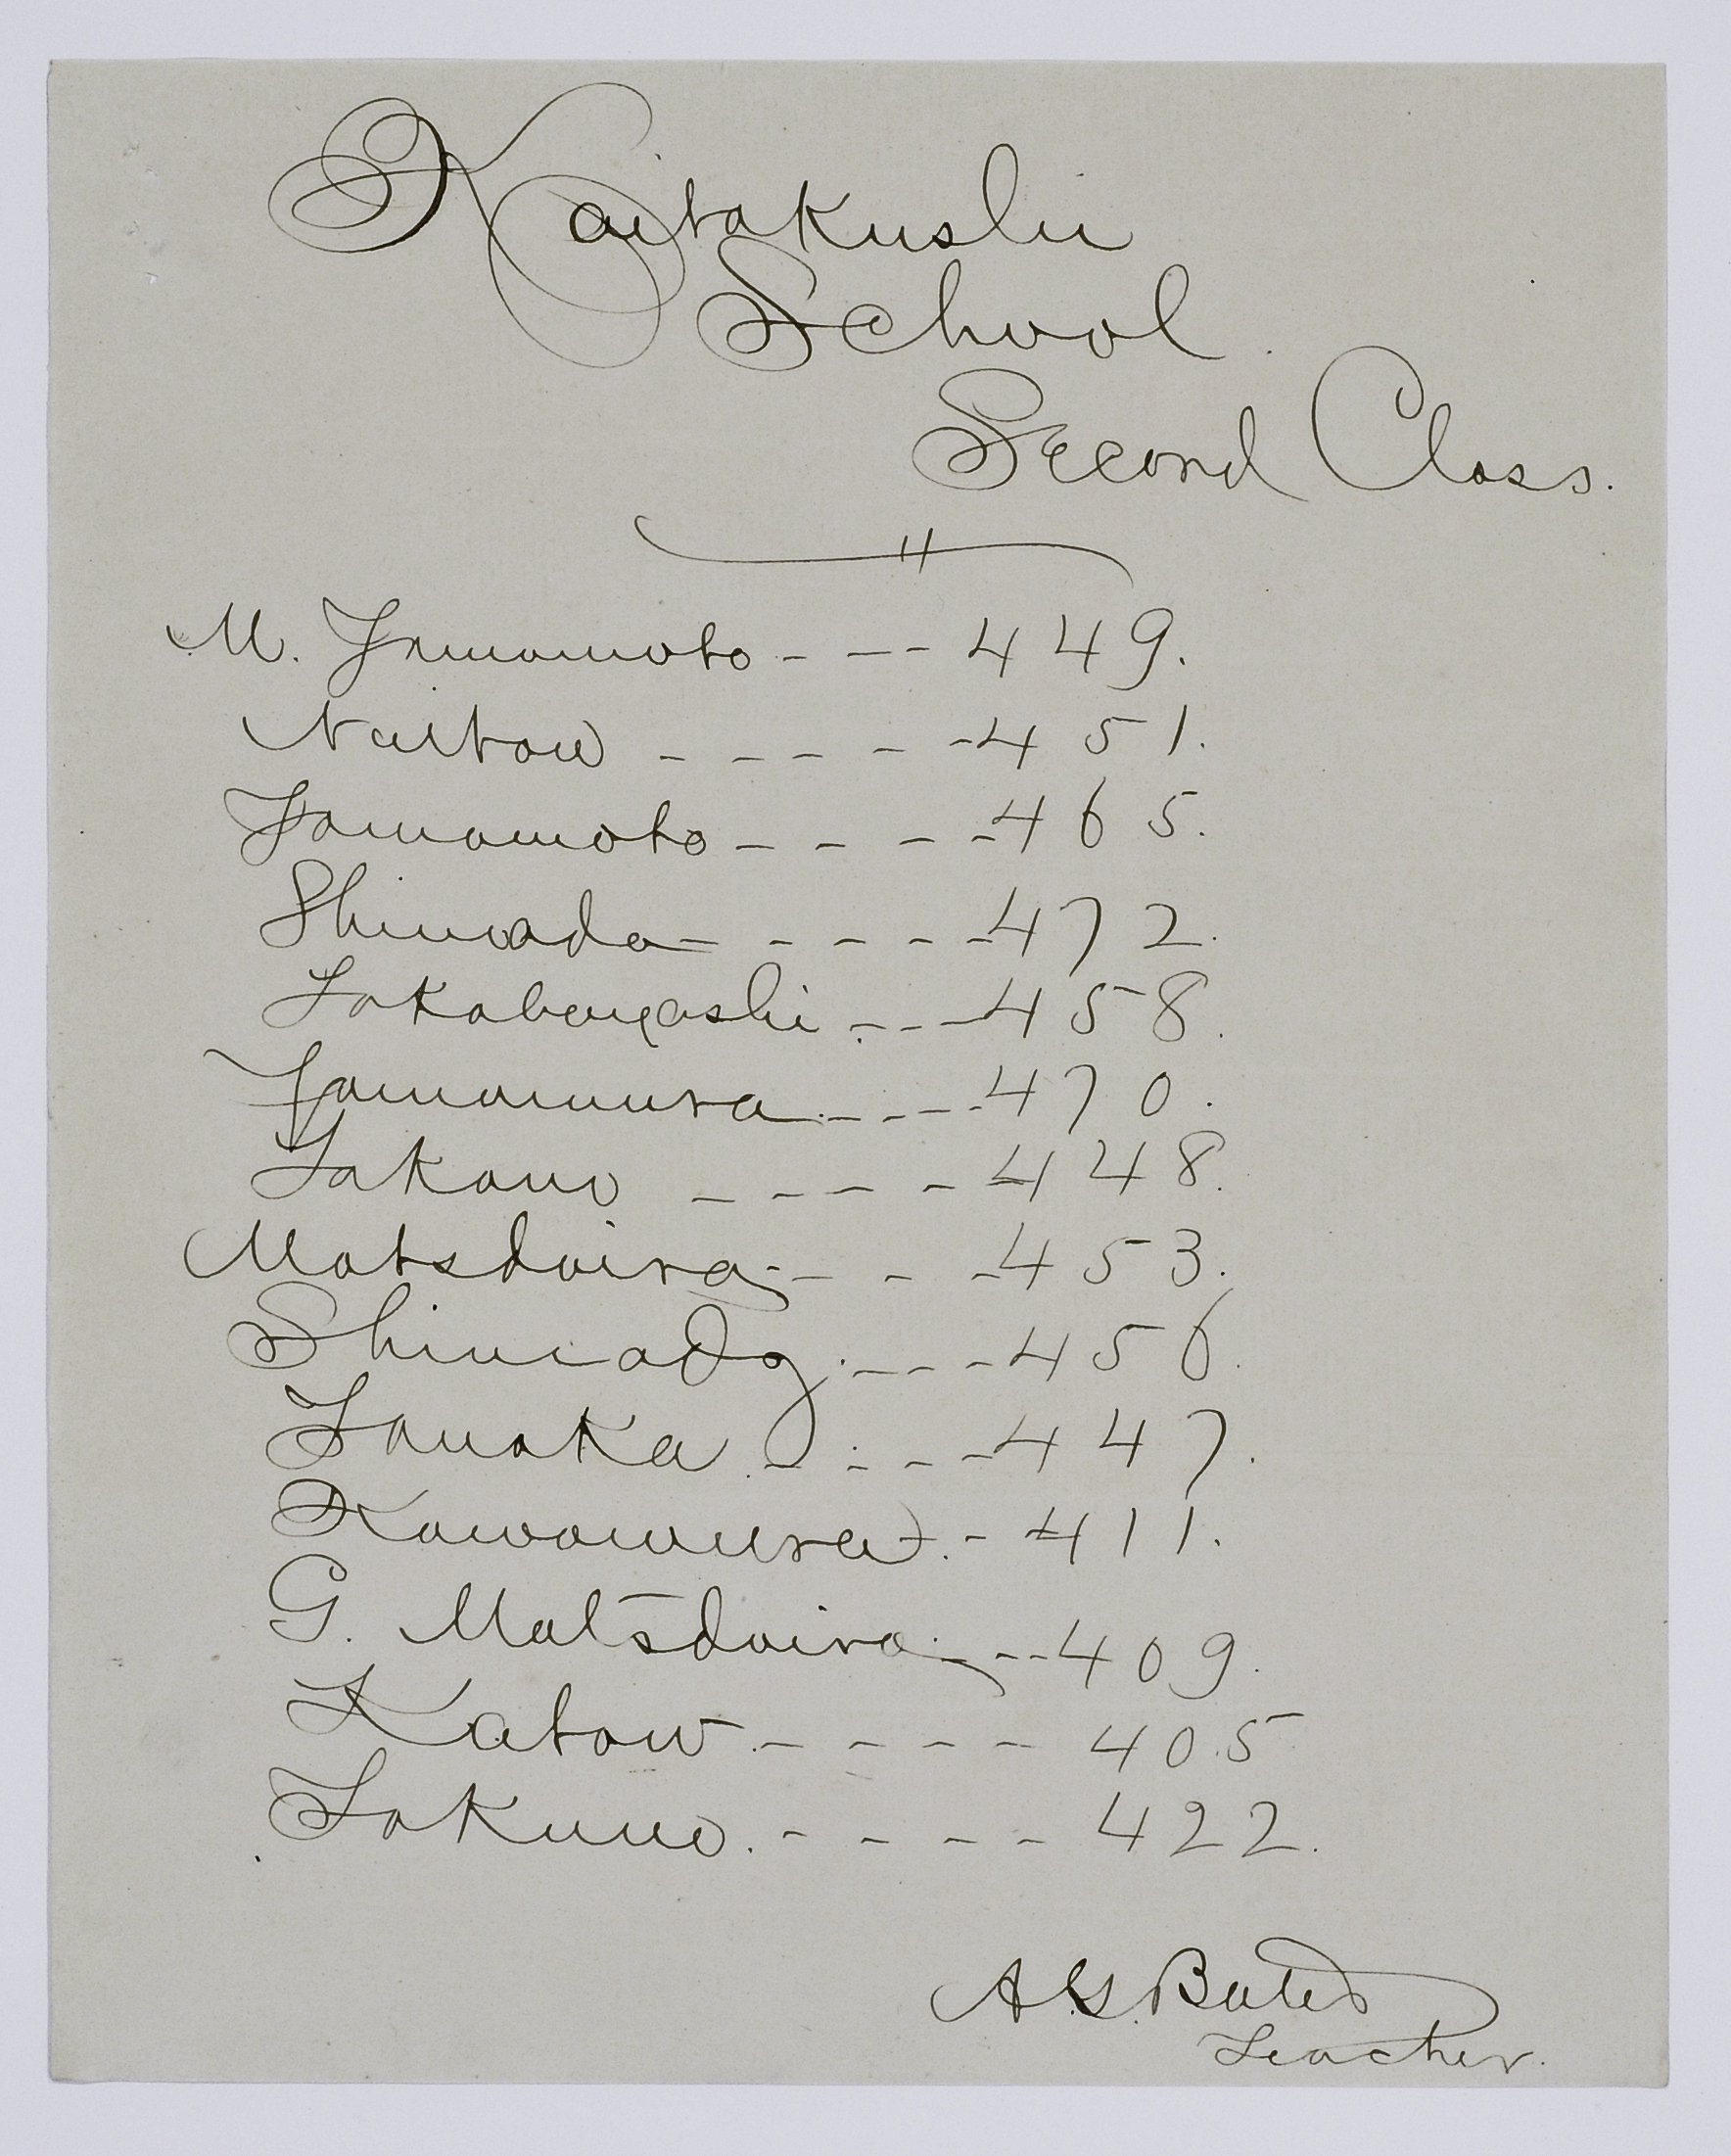 Kaitakushi
School.
Second Class.
M. Yamamoto - - - 449.
Naitow - - - - - 451.
Yamamoto - - - - 465.
Shimada - - - - - 472.
Takabayashi - - - 458.
Yamamura - - - - 470.
Takano - - - - - 448.
Matsdaira - - - - 453.
Shimada - - - - 456.
Tanaka - - - - - 447.
Kawamura - - 411.
G. Matsdaira - - - 409.
Katow - - - - 405
Takuno. - - - - 422.
A. G. Bates
Teacher.